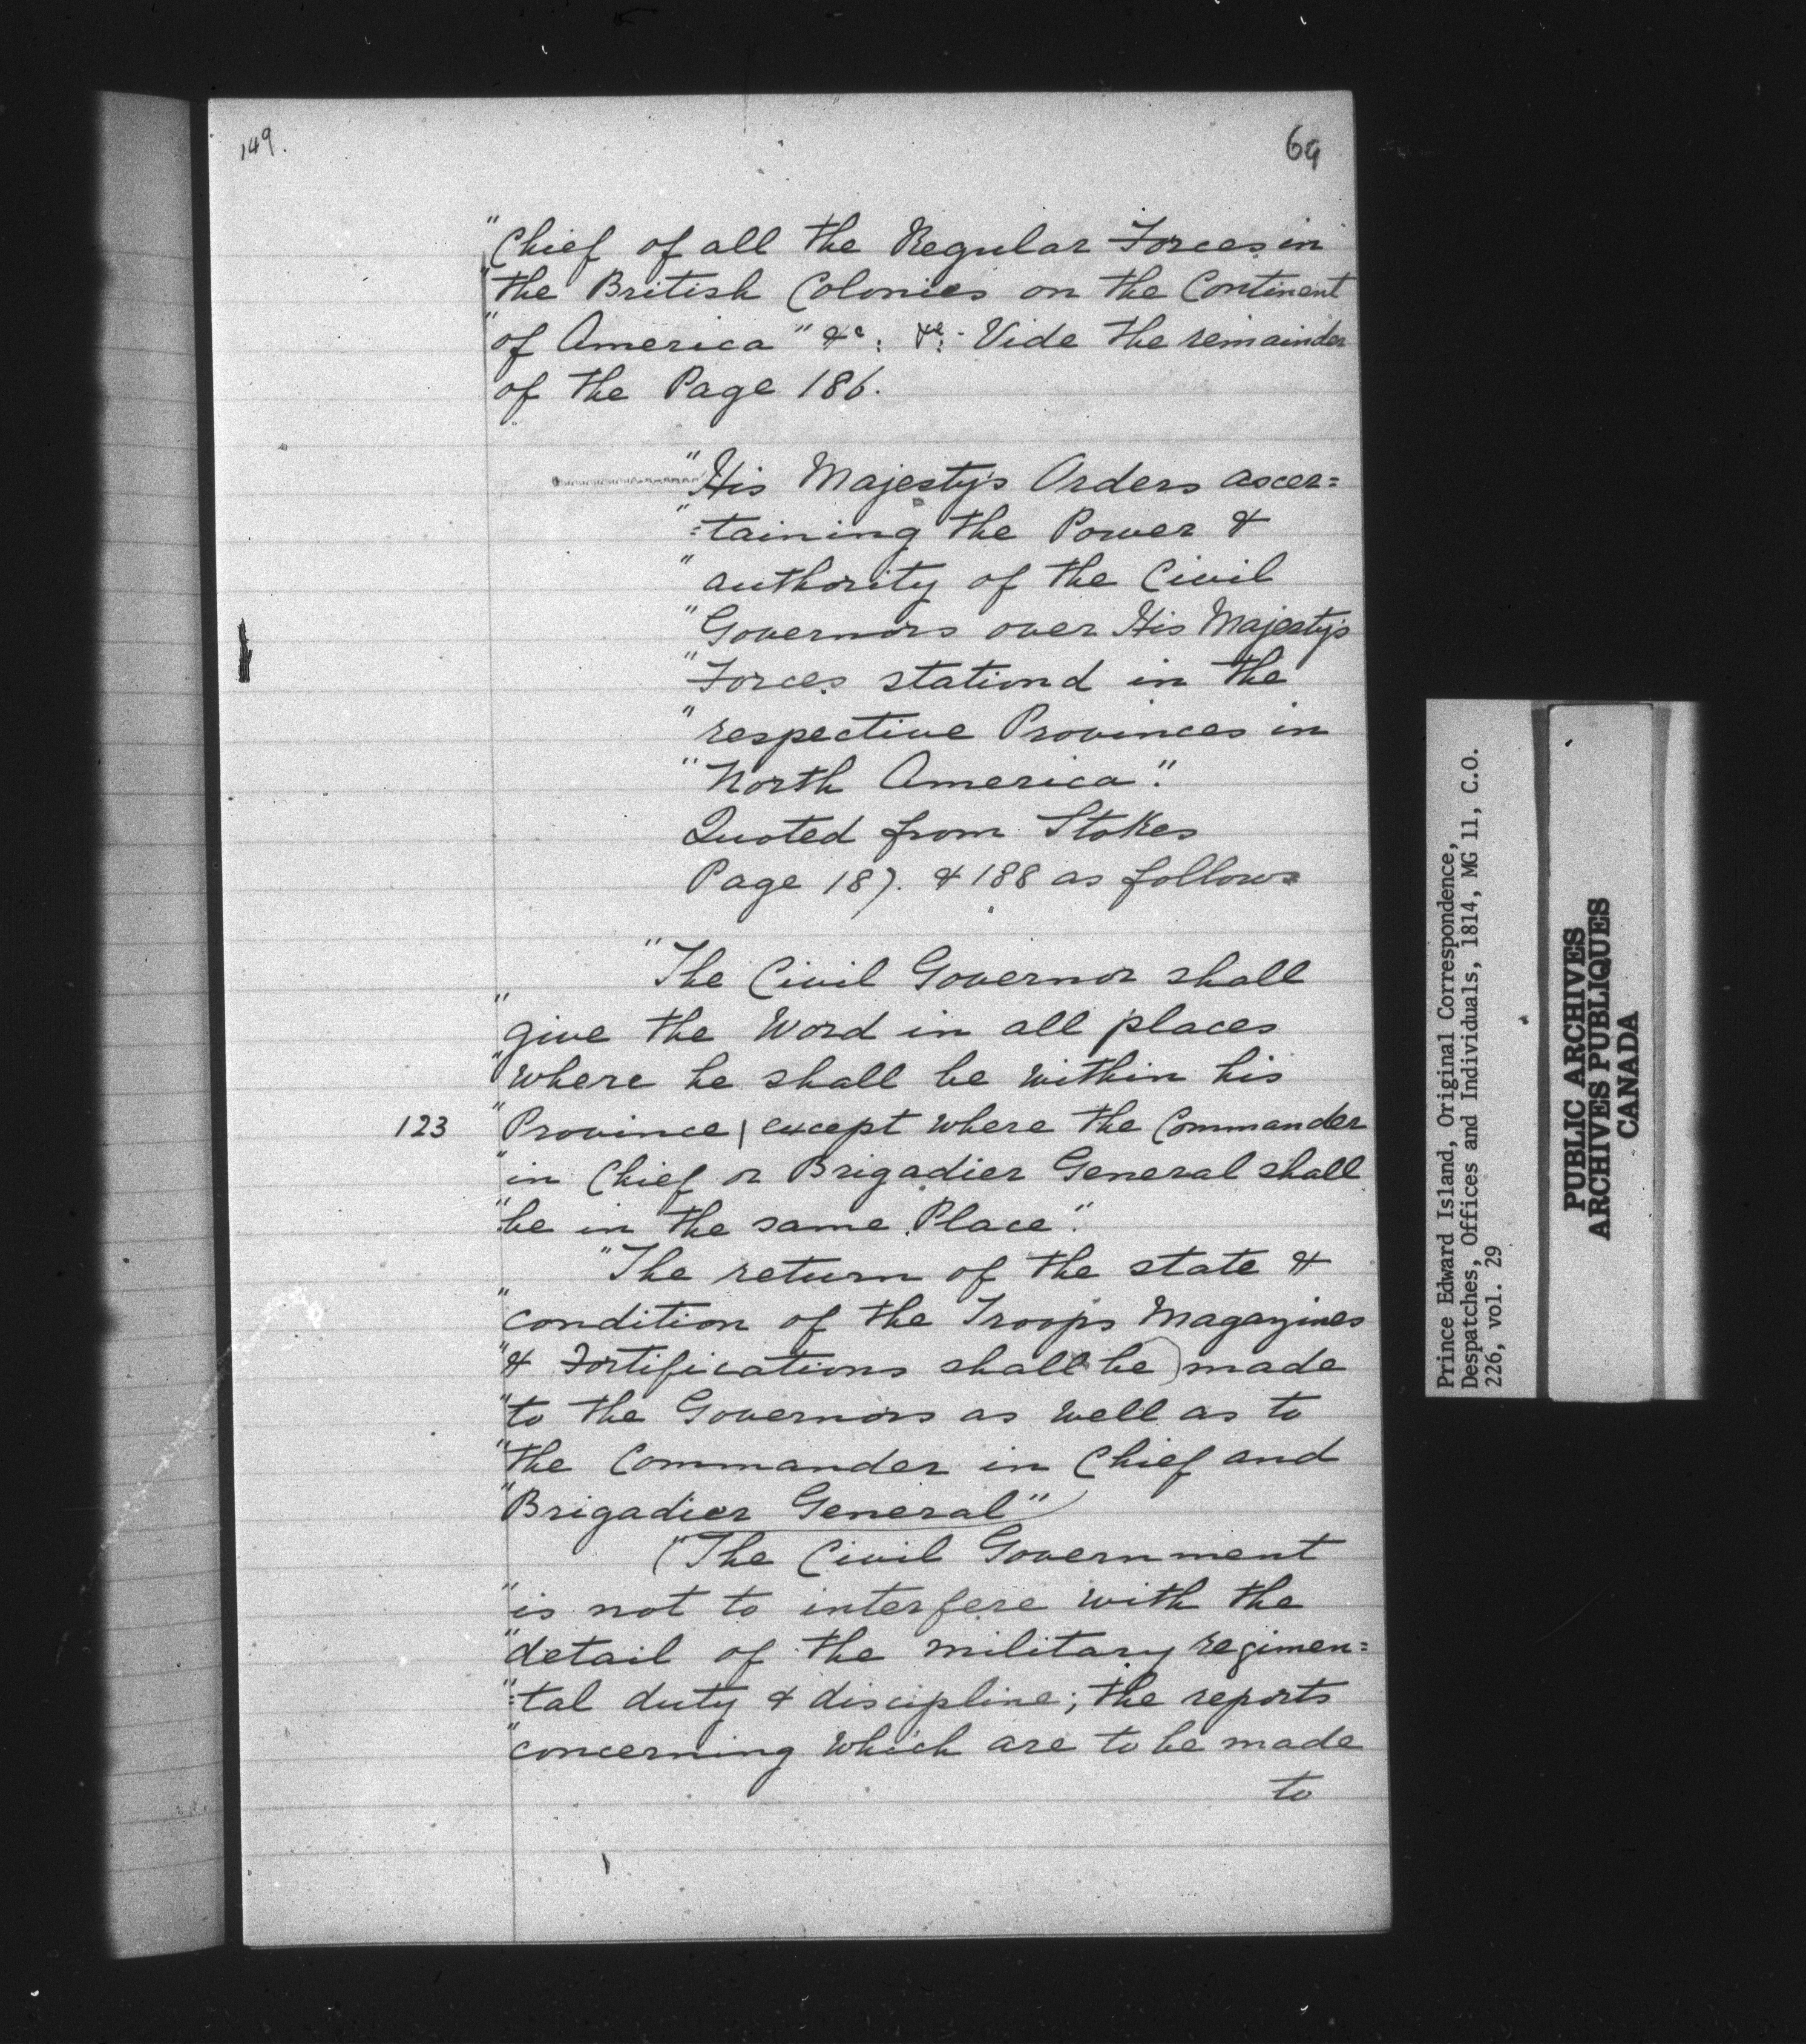 149.
69
"Chief of all the Regular Forces in
"the British Colonies on the Continent
"of America" &c: &c: Vide the remainder
of the Page 186.
"His Majesty's Orders ascer=
"=taining the Power &
"authority of the Civil
"Governors over His Majesty's
"Forces stationd in the
"respective Provinces in
"North America".
Quoted from Stokes
Page 187. & 188 as follows
"The Civil Governor shall
"give the Word in all places
"where he shall be within his
123 "Province | except where the Commander
"in Chief or Brigadier General shall
"be in the same Place".
"The return of the state &
"condition of the Troops Magazines
"& Fortifications shall be) made
"to the Governors as well as to
"the Commander in Chief and
"Brigadier General"
("The Civil Government
"is not to interfere with the
"detail of the military regimen=
"=tal duty & discipline; the reports
"concerning which are to be made
to
Prince Edward Island, Original Correspondence,
Despatches, Offices and Individuals, 1814, MG 11, C.O.
226, vol. 29
PUBLIC ARCHIVES
ARCHIVES PUBLIQUES
CANADA